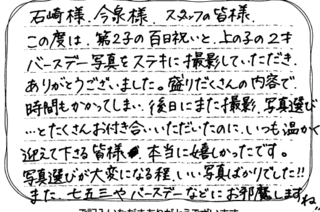 石崎様、今泉様、スタッフの皆様
この度は、第2子の百日祝いと、上の子の2才
バースデー写真をステキに撮影していただき、
ありがとうございました。盛りだくさんの内容で
時間もかかってしまい、後日にまた撮影、写真選び
…とたくさんお付き合いいただいたのに、いつも温かく
迎えて下さる皆様、本当に嬉しかったです。
写真選びが大変になる程、いい写真ばかりでした!!
また、七五三やバースデーなどにお邪魔しますね!!